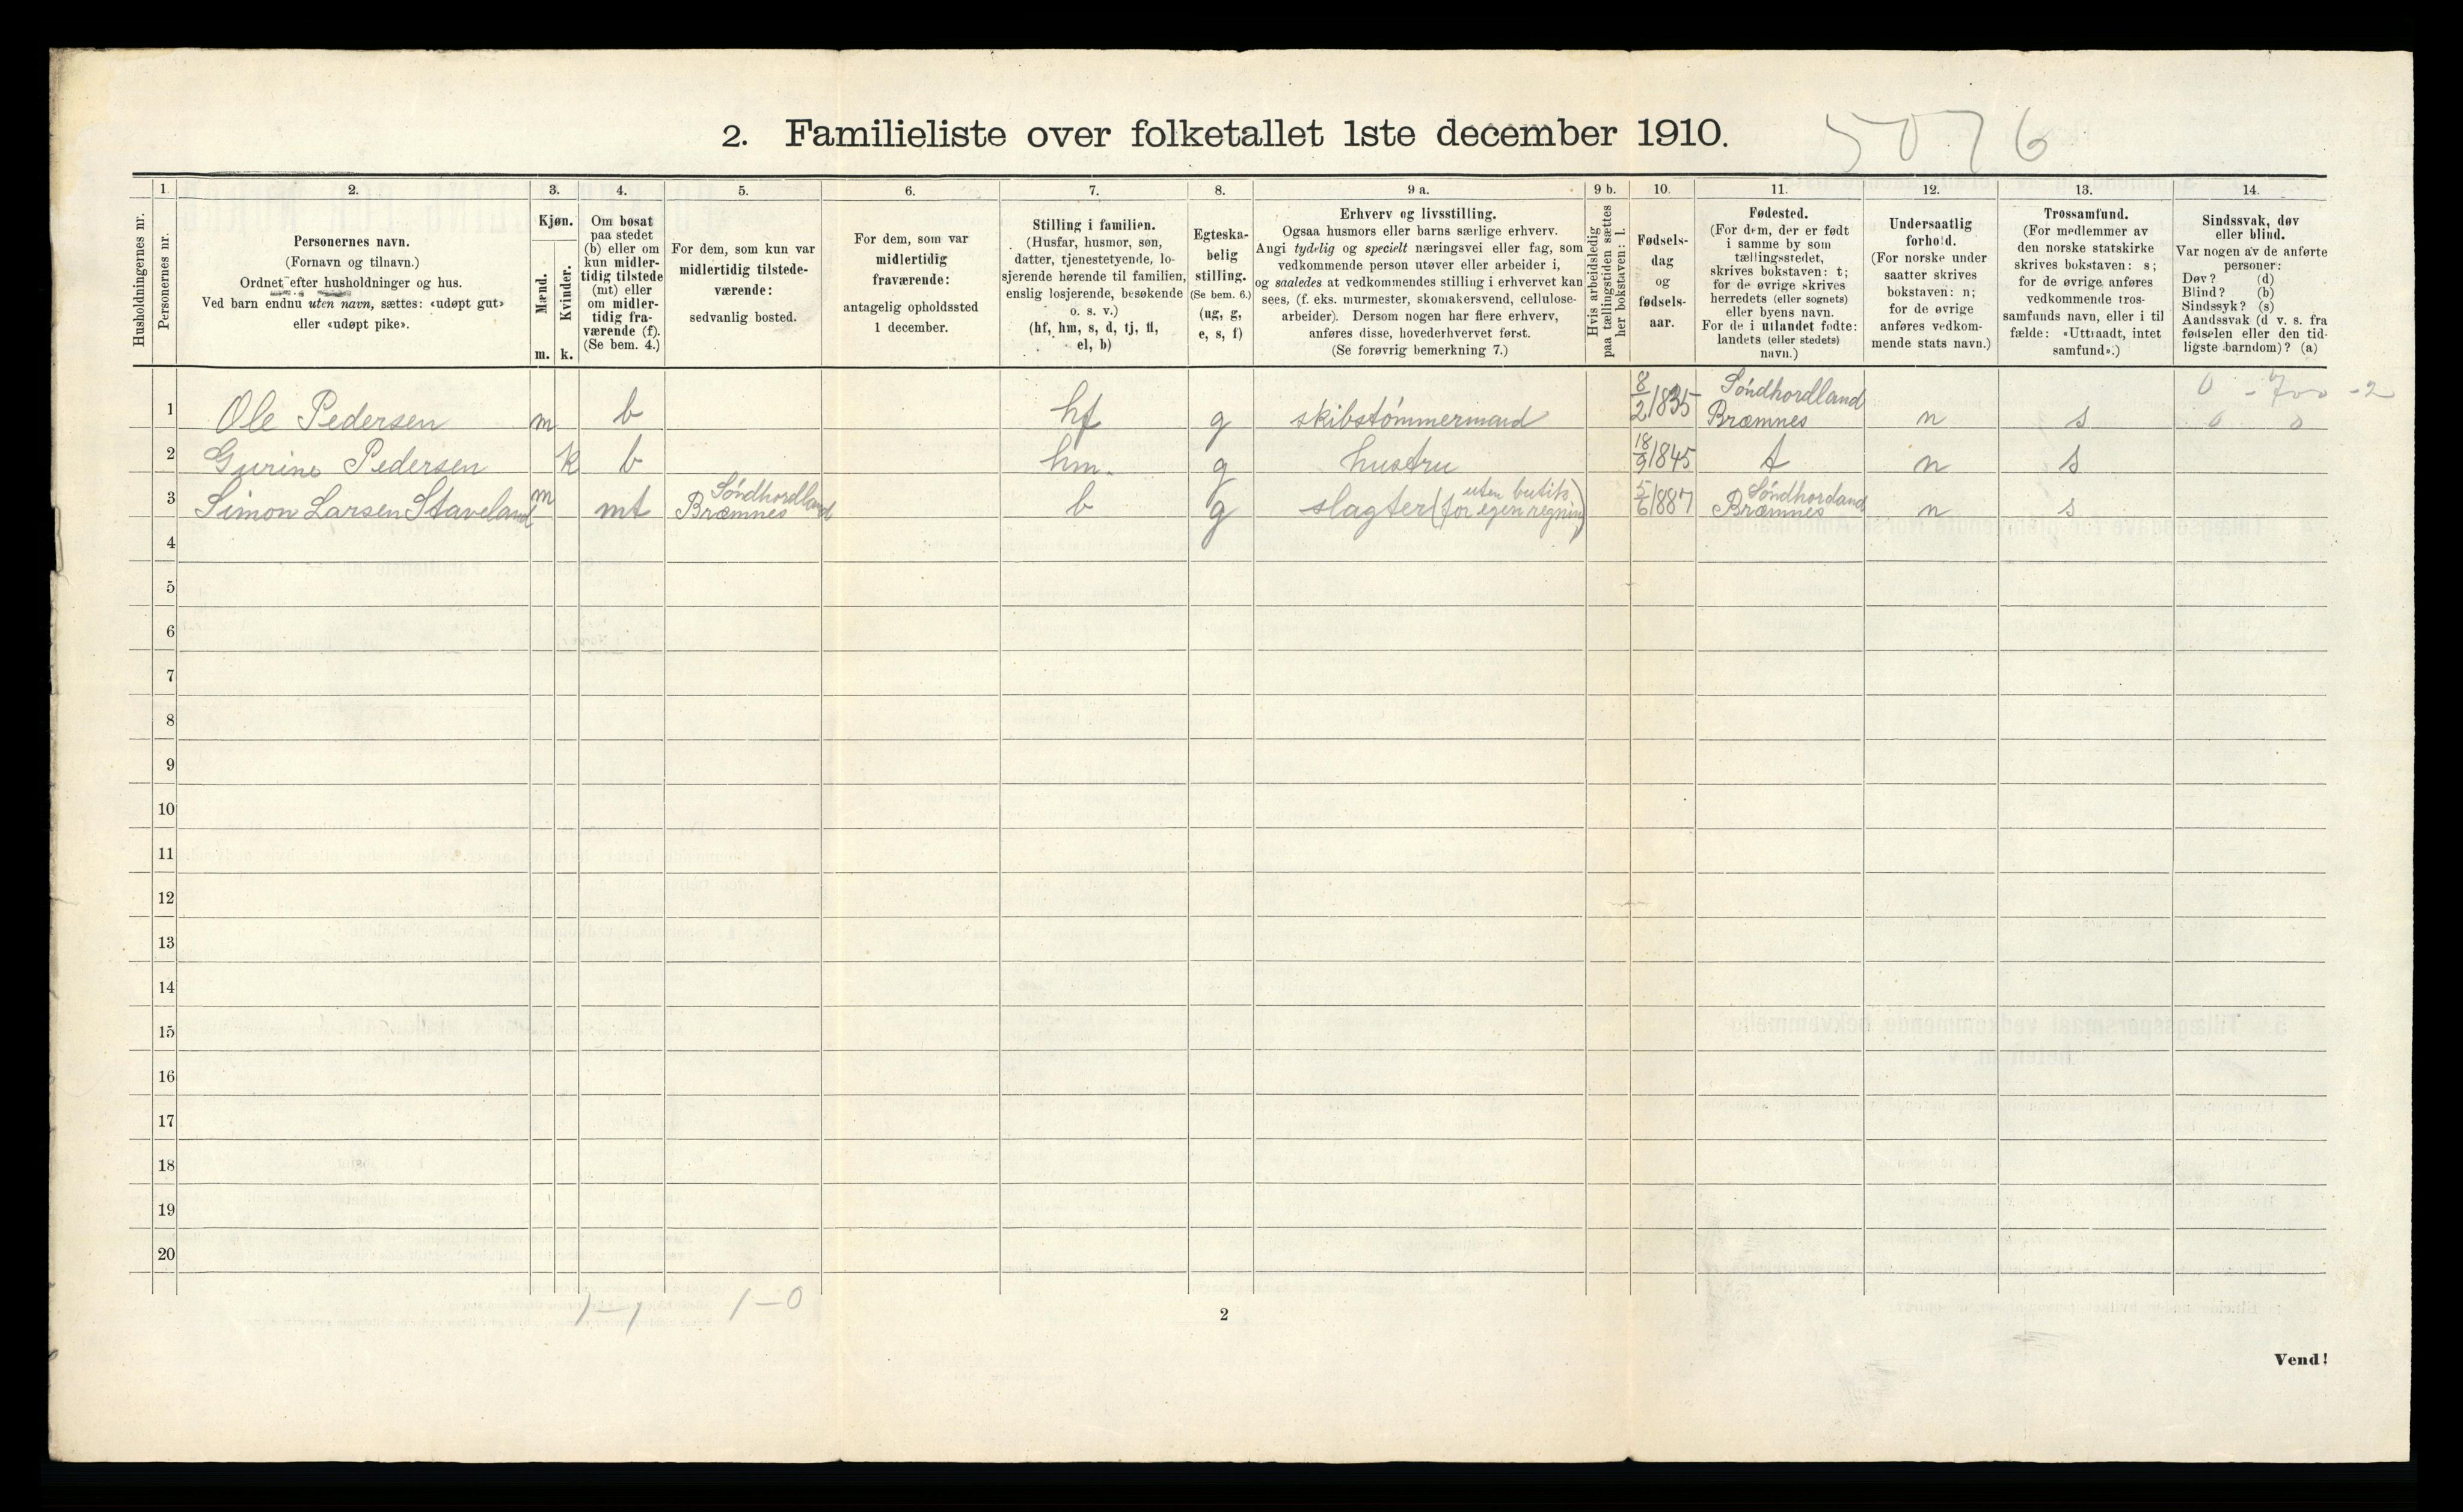 2. Familieliste over folketallet 1ste december 1910.
5076
Husholdningernes nr.
1.
Personernes nr.
2.
Personernes navn.
(Fornavn og tilnavn.)
Ordnet efter husholdninger og hus.
Ved barn endnu uten navn, sættes: «udøpt gut»
eller «udøpt pike».
3.
Kjøn.
Mænd.
Kvinder.
m. k.
4.
Om bosat
paa stedet
(b) eller om
kun midler-
tidig tilstede
(mt) eller
om midler-
tidig fra-
værende (f).
(Se bem. 4.)
5.
For dem, som kun var
midlertidig tilstede-
værende:
sedvanlig bosted.
6.
For dem, som var
midlertidig
fraværende:
antagelig opholdssted
1 december.
7.
Stilling i familien.
(Husfar, husmor, søn,
datter, tjenestetyende, lo-
sjerende hørende til familien,
enslig losjerende, besøkende
o. s. v.)
(hf, hm, s, d, tj, fl,
el, b)
8.
Egteska-
belig
stilling.
(Se bem. 6.)
(ug, g,
e, s, f)
9 a.
Erhverv og livsstilling.
Ogsaa husmors eller barns særlige erhverv.
Angi tydelig og specielt næringsvei eller fag, som
vedkommende person utøver eller arbeider i,
og saaledes at vedkommendes stilling i erhvervet kan
sees, (f. eks. murmester, skomakersvend, cellulose-
arbeider). Dersom nogen har flere erhverv,
anføres disse, hovederhvervet først.
(Se forøvrig bemerkning 7.)
9 b.
Hvis arbeidsledig
paa tællingstiden sættes
her bokstaven: l.
10.
Fødsels-
dag
og
fødsels-
aar.
11.
Fødested.
(For dem, der er født
i samme by som
tællingsstedet,
skrives bokstaven: t;
for de øvrige skrives
herredets (eller sognets)
eller byens navn.
For de i utlandet fødte:
landets (eller stedets)
navn.)
12.
Undersaatlig
forhold.
(For norske under
saatter skrives
bokstaven: n;
for de øvrige
anføres vedkom-
mende stats navn.)
13.
Trossamfund.
(For medlemmer av
den norske statskirke
skrives bokstaven: s;
for de øvrige anføres
vedkommende tros-
samfunds navn, eller i til
fælde: «Uttraadt, intet
samfund».)
14.
Sindssvak, døv
eller blind.
Var nogen av de anførte
personer:
Døv? (d)
Blind? (b)
Sindssyk? (s)
Aandssvak (d v. s. fra
fødselen eller den tid-
ligste barndom)? (a)
0 - 700 - 2
1 Ole Pedersen m b hf g skibstømmermand 8/2 1835 Søndhordland Bræmnes n s 0 0
2 Gurine Pedersen k b hm. g hustru 18/9 1845 t n s
3 Simon Larsen Staveland m mt Søndhordland Bræmnes b g slagter (uten butik for egen regning) 5/6 1887 Søndhordand Bræmnes n s
4
5
6
7
8
9
10
11
12
13
14
15
16
17
18
19
20
1-1 1-0
2
Vend!